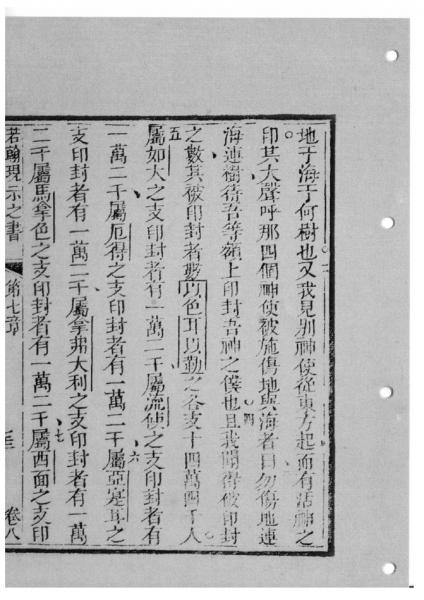 地于海于何樹也又我見別神使從東方起而有活神之
二
印其大聲呼那四個神使被施傷地與海者曰勿傷地連
三
海連樹待吾等額上印封吾神之僕也且我聞得被印封
四
之數其被印封者數以色耳以勒之各支十四萬四千人
五
屬如大之支印封者有一萬二千屬流使之支印封者有
一萬二千屬厄得之支印封者有一萬二千屬亞寔耳之
六
支印封者有一萬二千屬拿弗大利之支印封者有一萬
二千屬馬拿色之支印封者有一萬二千屬西面之支印
七
若翰現示之書 第七章 卷八